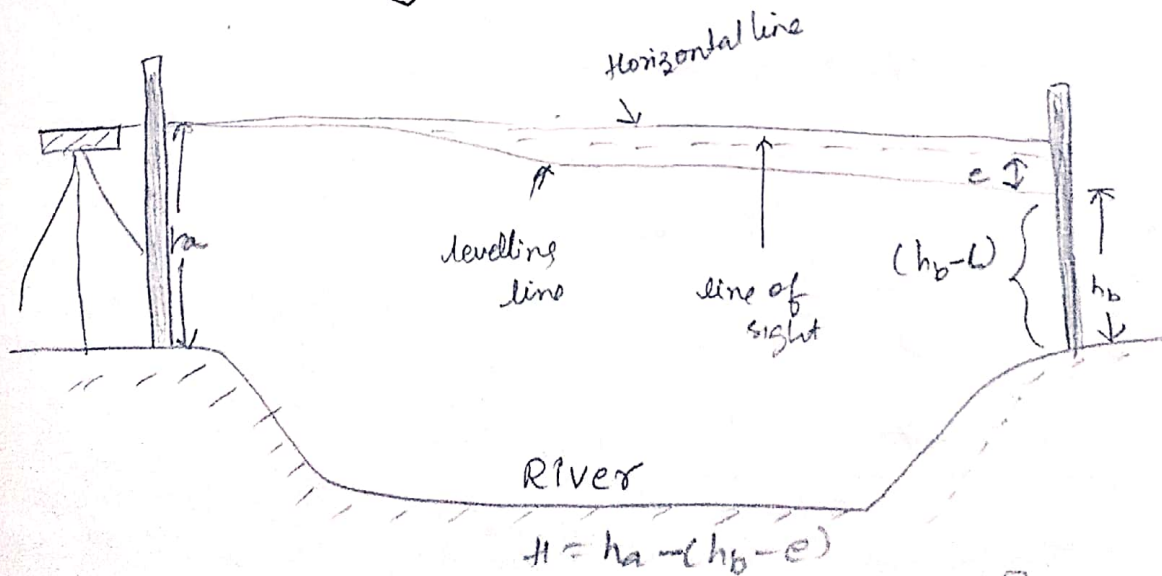 Horizontal line
ha
e
levelling
line
line of
sight
(hb-e)
hb
River
H = ha -(hb - e)